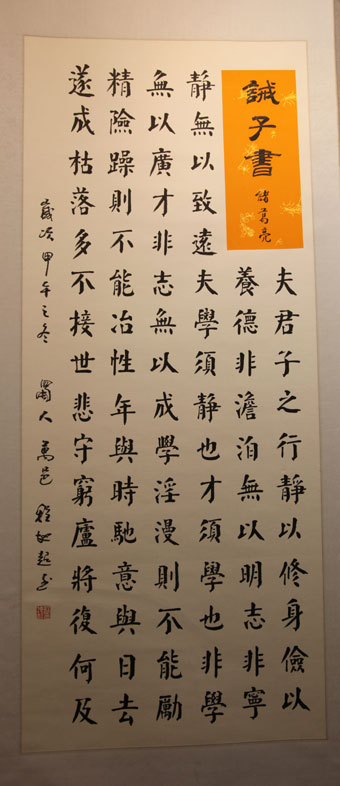 誡子書
諸葛亮
夫君子之行靜以修身儉以
養德非澹泊無以明志非寧
靜無以致遠夫學須靜也才須學也非學
無以廣才非志無以成學淫漫則不能勵
精險躁則不能冶性年與時馳意與日去
遂成枯落多不接世悲守窮廬將復何及
歲次甲午之冬 蜀人萬邑